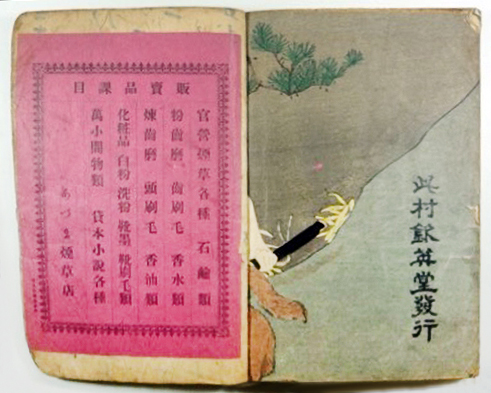 販賣品課目
官營煙草各種 石鹼類
粉齒磨 齒刷毛 香水類
煉齒磨 頭刷毛 香油類
化粧品 白粉 洗粉 靴墨 靴刷毛類
萬小間物類 貸本小說各種
あづま煙草店
此村欽英堂發行